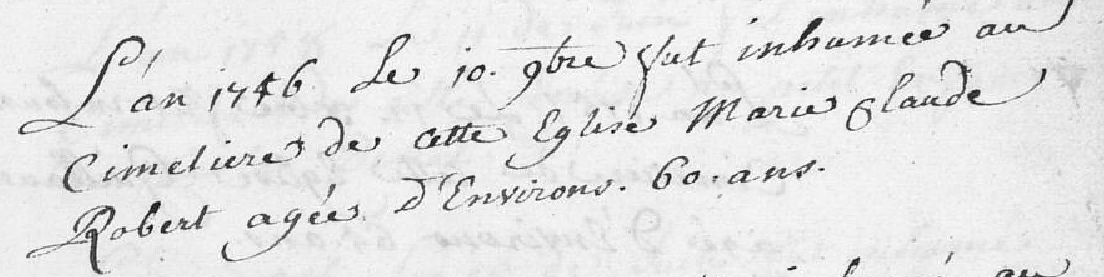 L'an 1746. Le 10. 9bre fut inhumée au
Cimetiere de cette Eglise Marie Claude
Robert agée D'Environs. 60. ans.
inhumé au